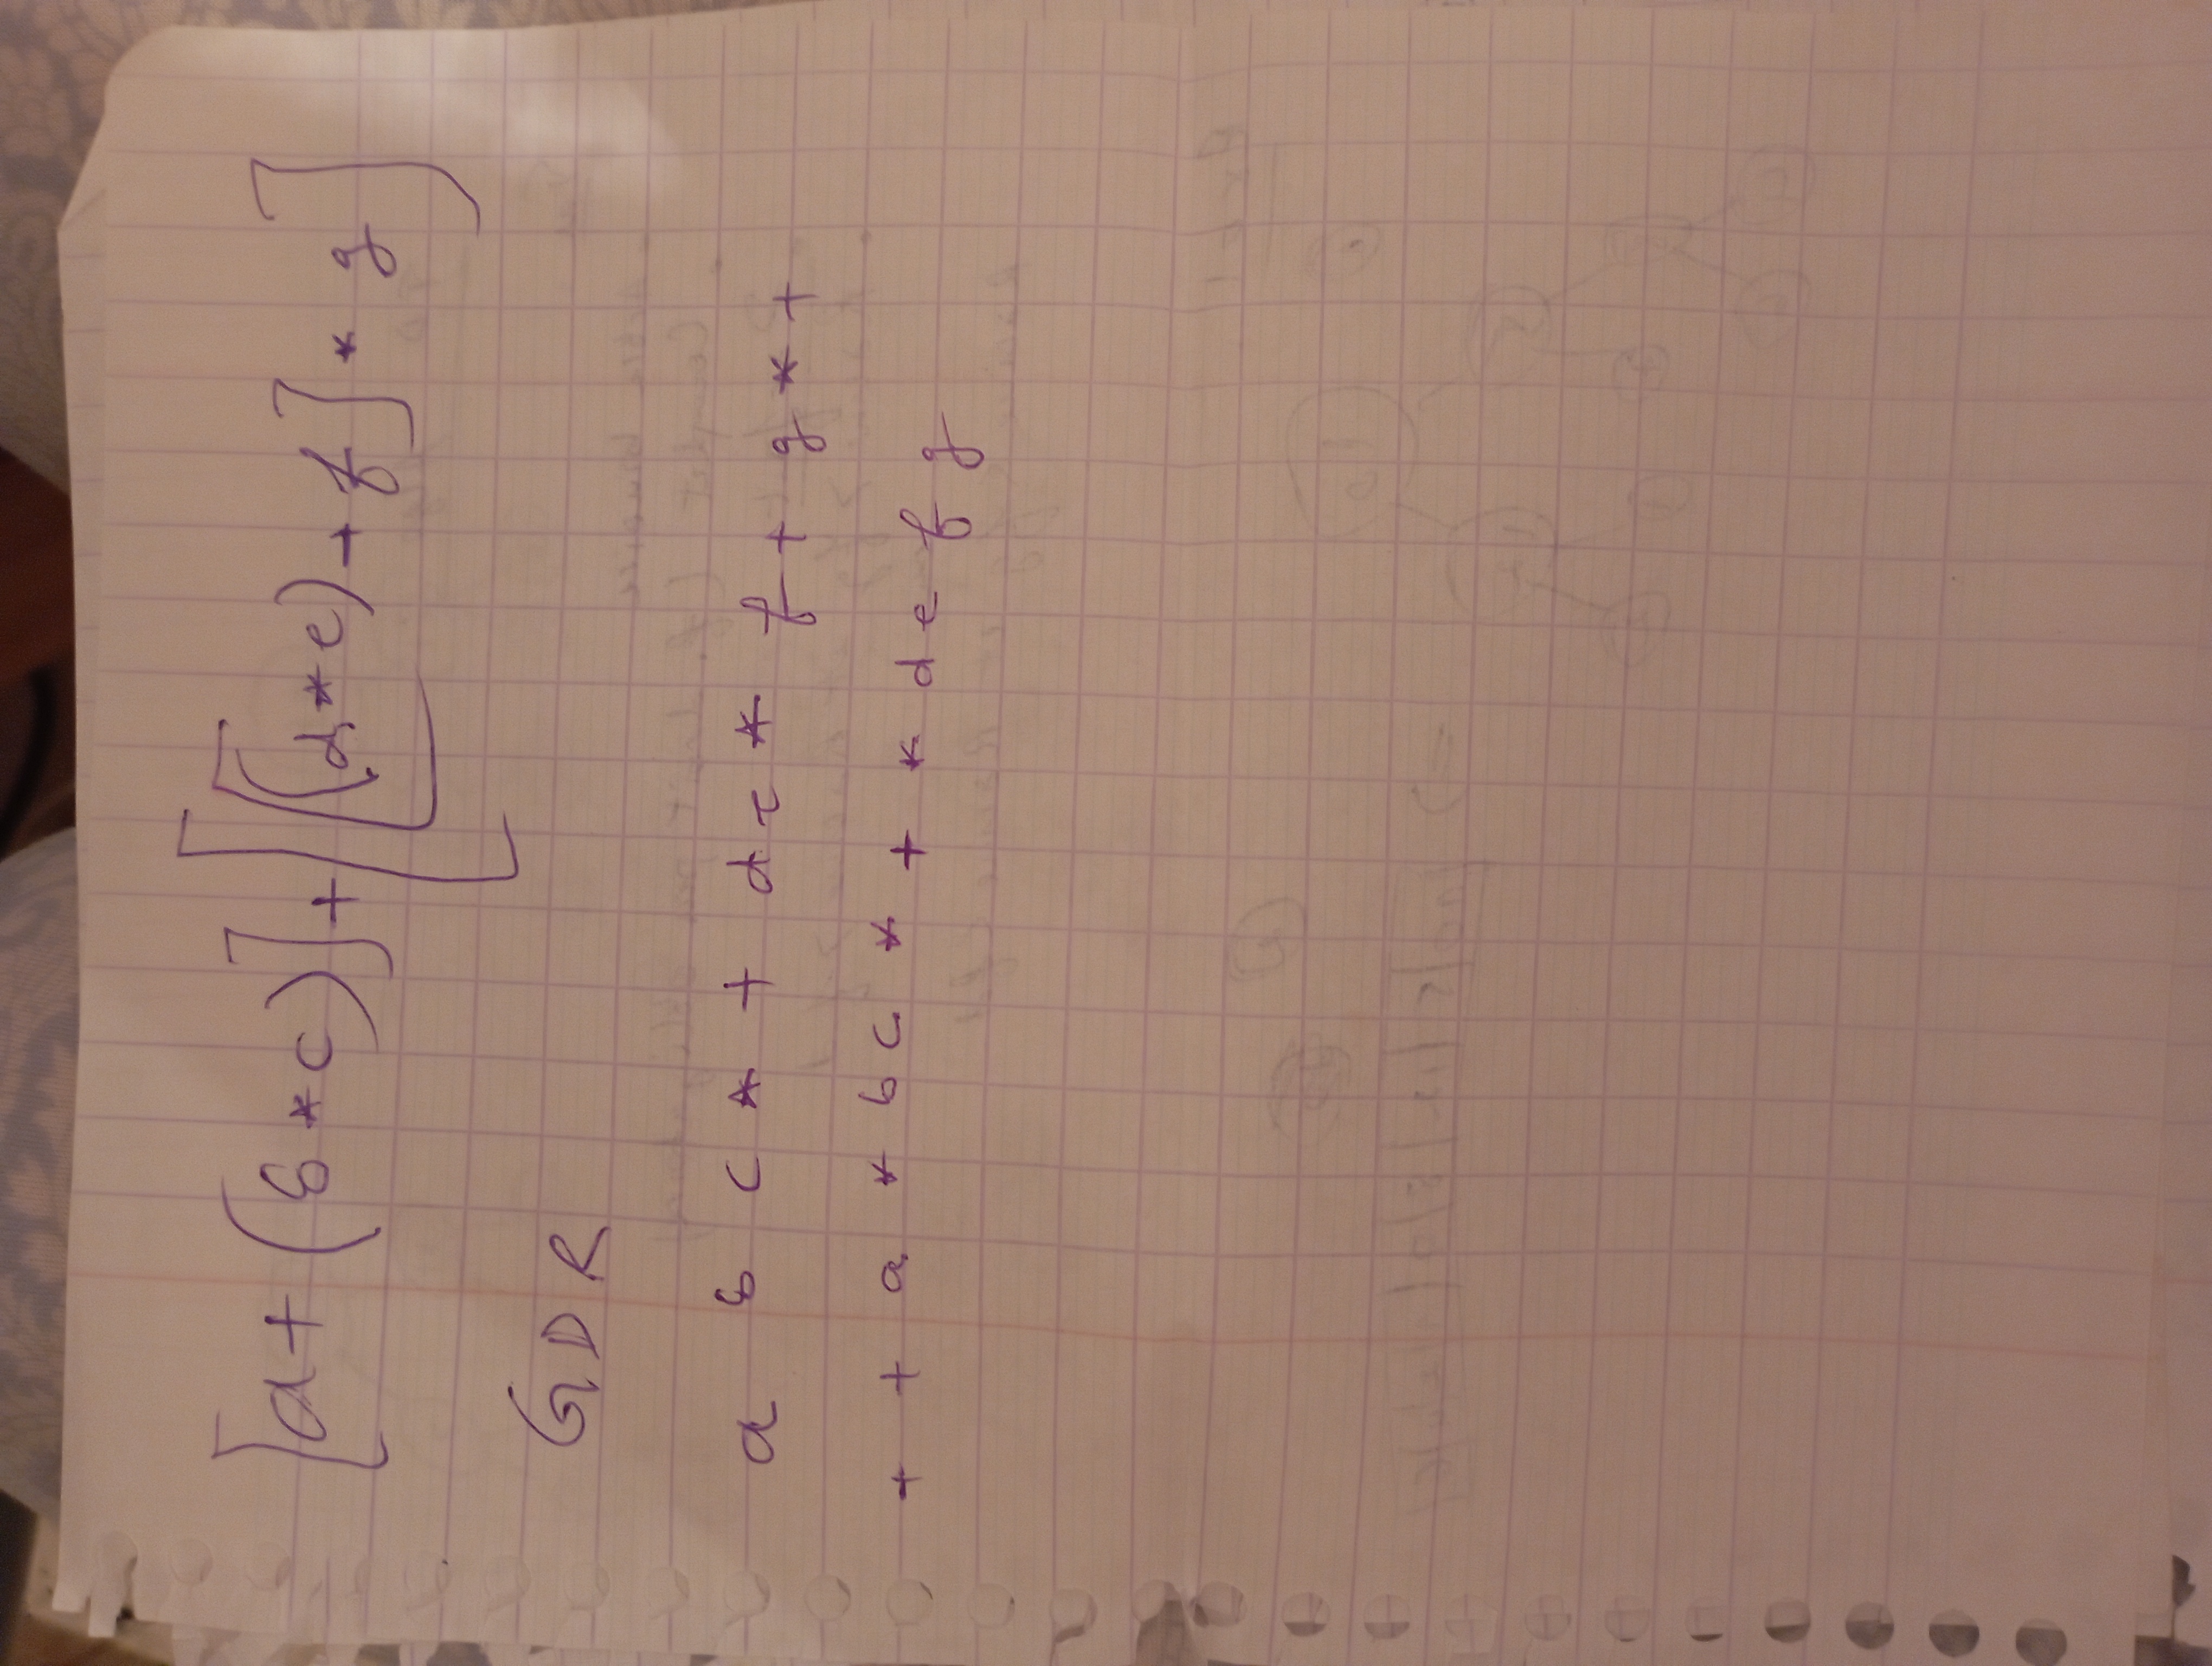 [a + (b * c)] + [[(d * e) + f] * g]
GDR
a b c * + d e * f + g * +
+ + a * b c * + * d e f g